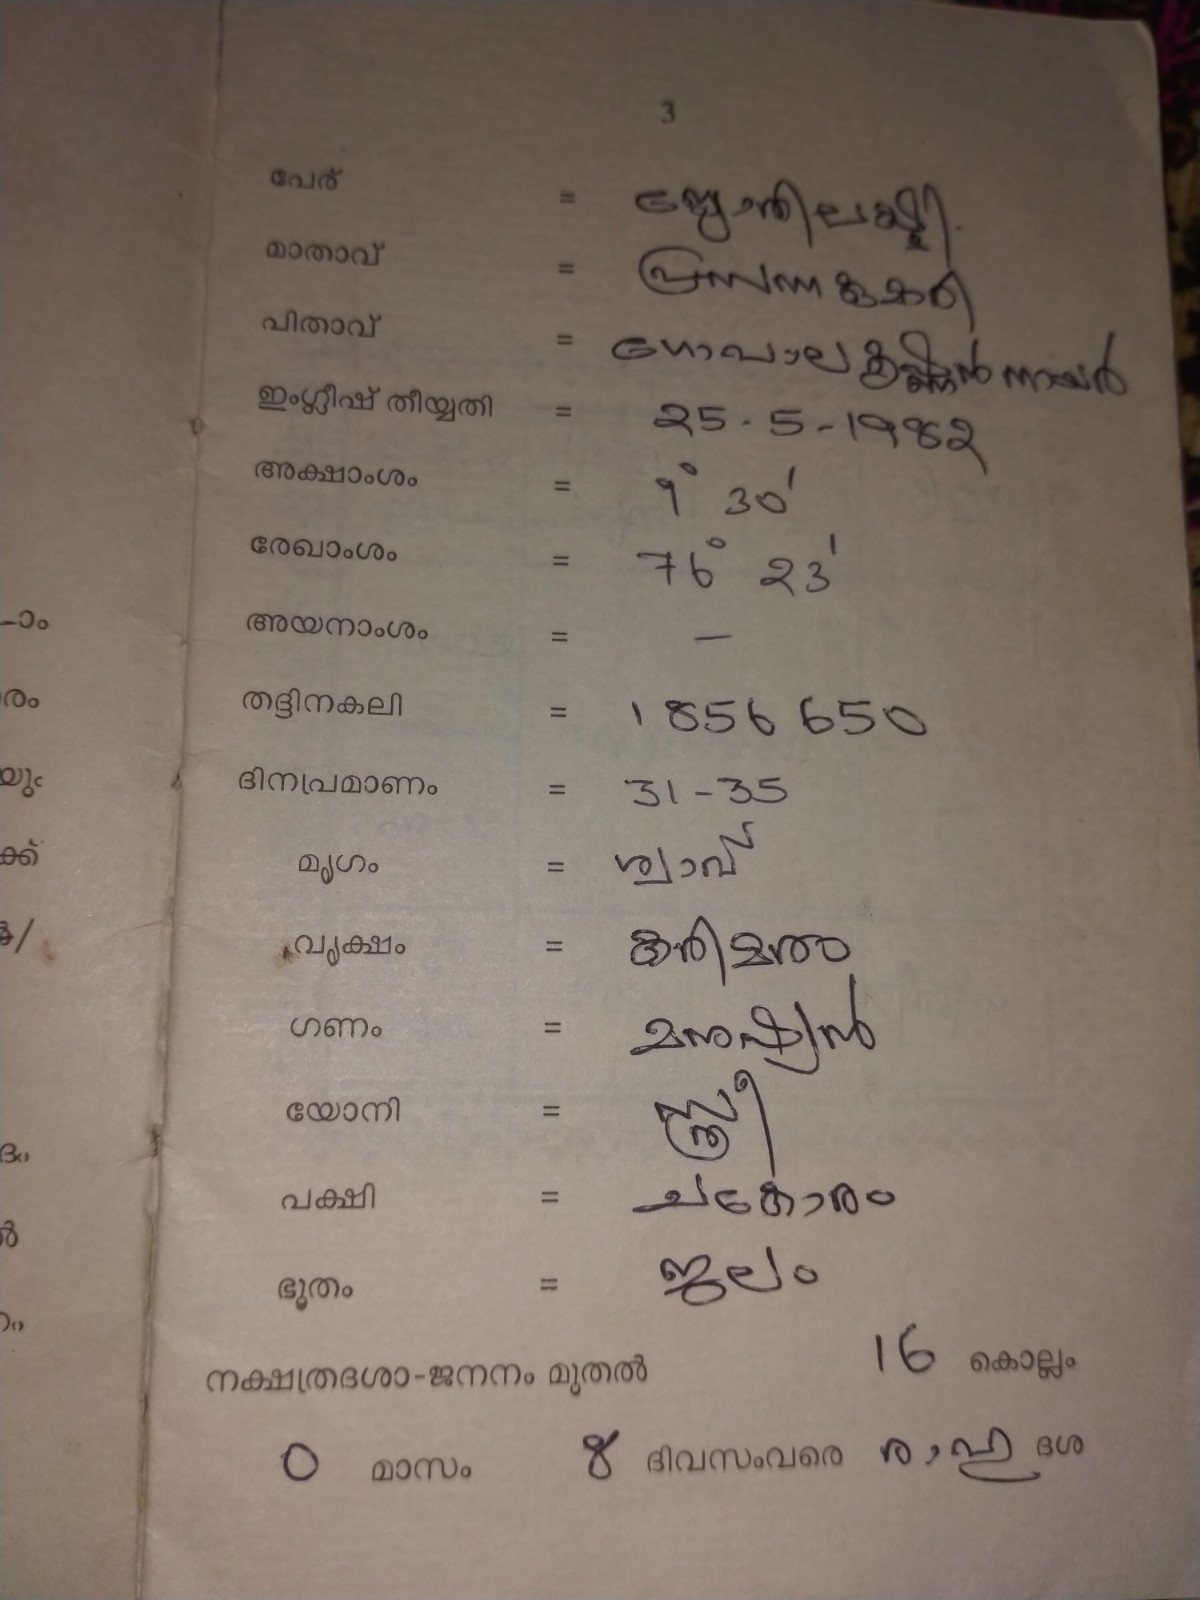 3
പേര് = ജ്യോതിലക്ഷ്മി.
മാതാവ് = പ്രസന്നകുമാരി
പിതാവ് = ഗോപാലകൃഷ്ണൻ നായർ
ഇംഗ്ലീഷ് തീയ്യതി = 25-5-1982
അക്ഷാംശം = 9° 30'
രേഖാംശം = 76° 23'
അയനാംശം = —
തദ്ദിനകലി = 1856650
ദിനപ്രമാണം = 31-35
മൃഗം = ശ്വാവ്
വൃക്ഷം = കരിമരം
ഗണം = മനുഷ്യൻ
യോനി = സ്ത്രീ
പക്ഷി = ചകോരം
ഭൂതം = ജലം
നക്ഷത്രദശാ-ജനനം മുതൽ 16 കൊല്ലം
0 മാസം 8 ദിവസംവരെ രാഹു ദശ